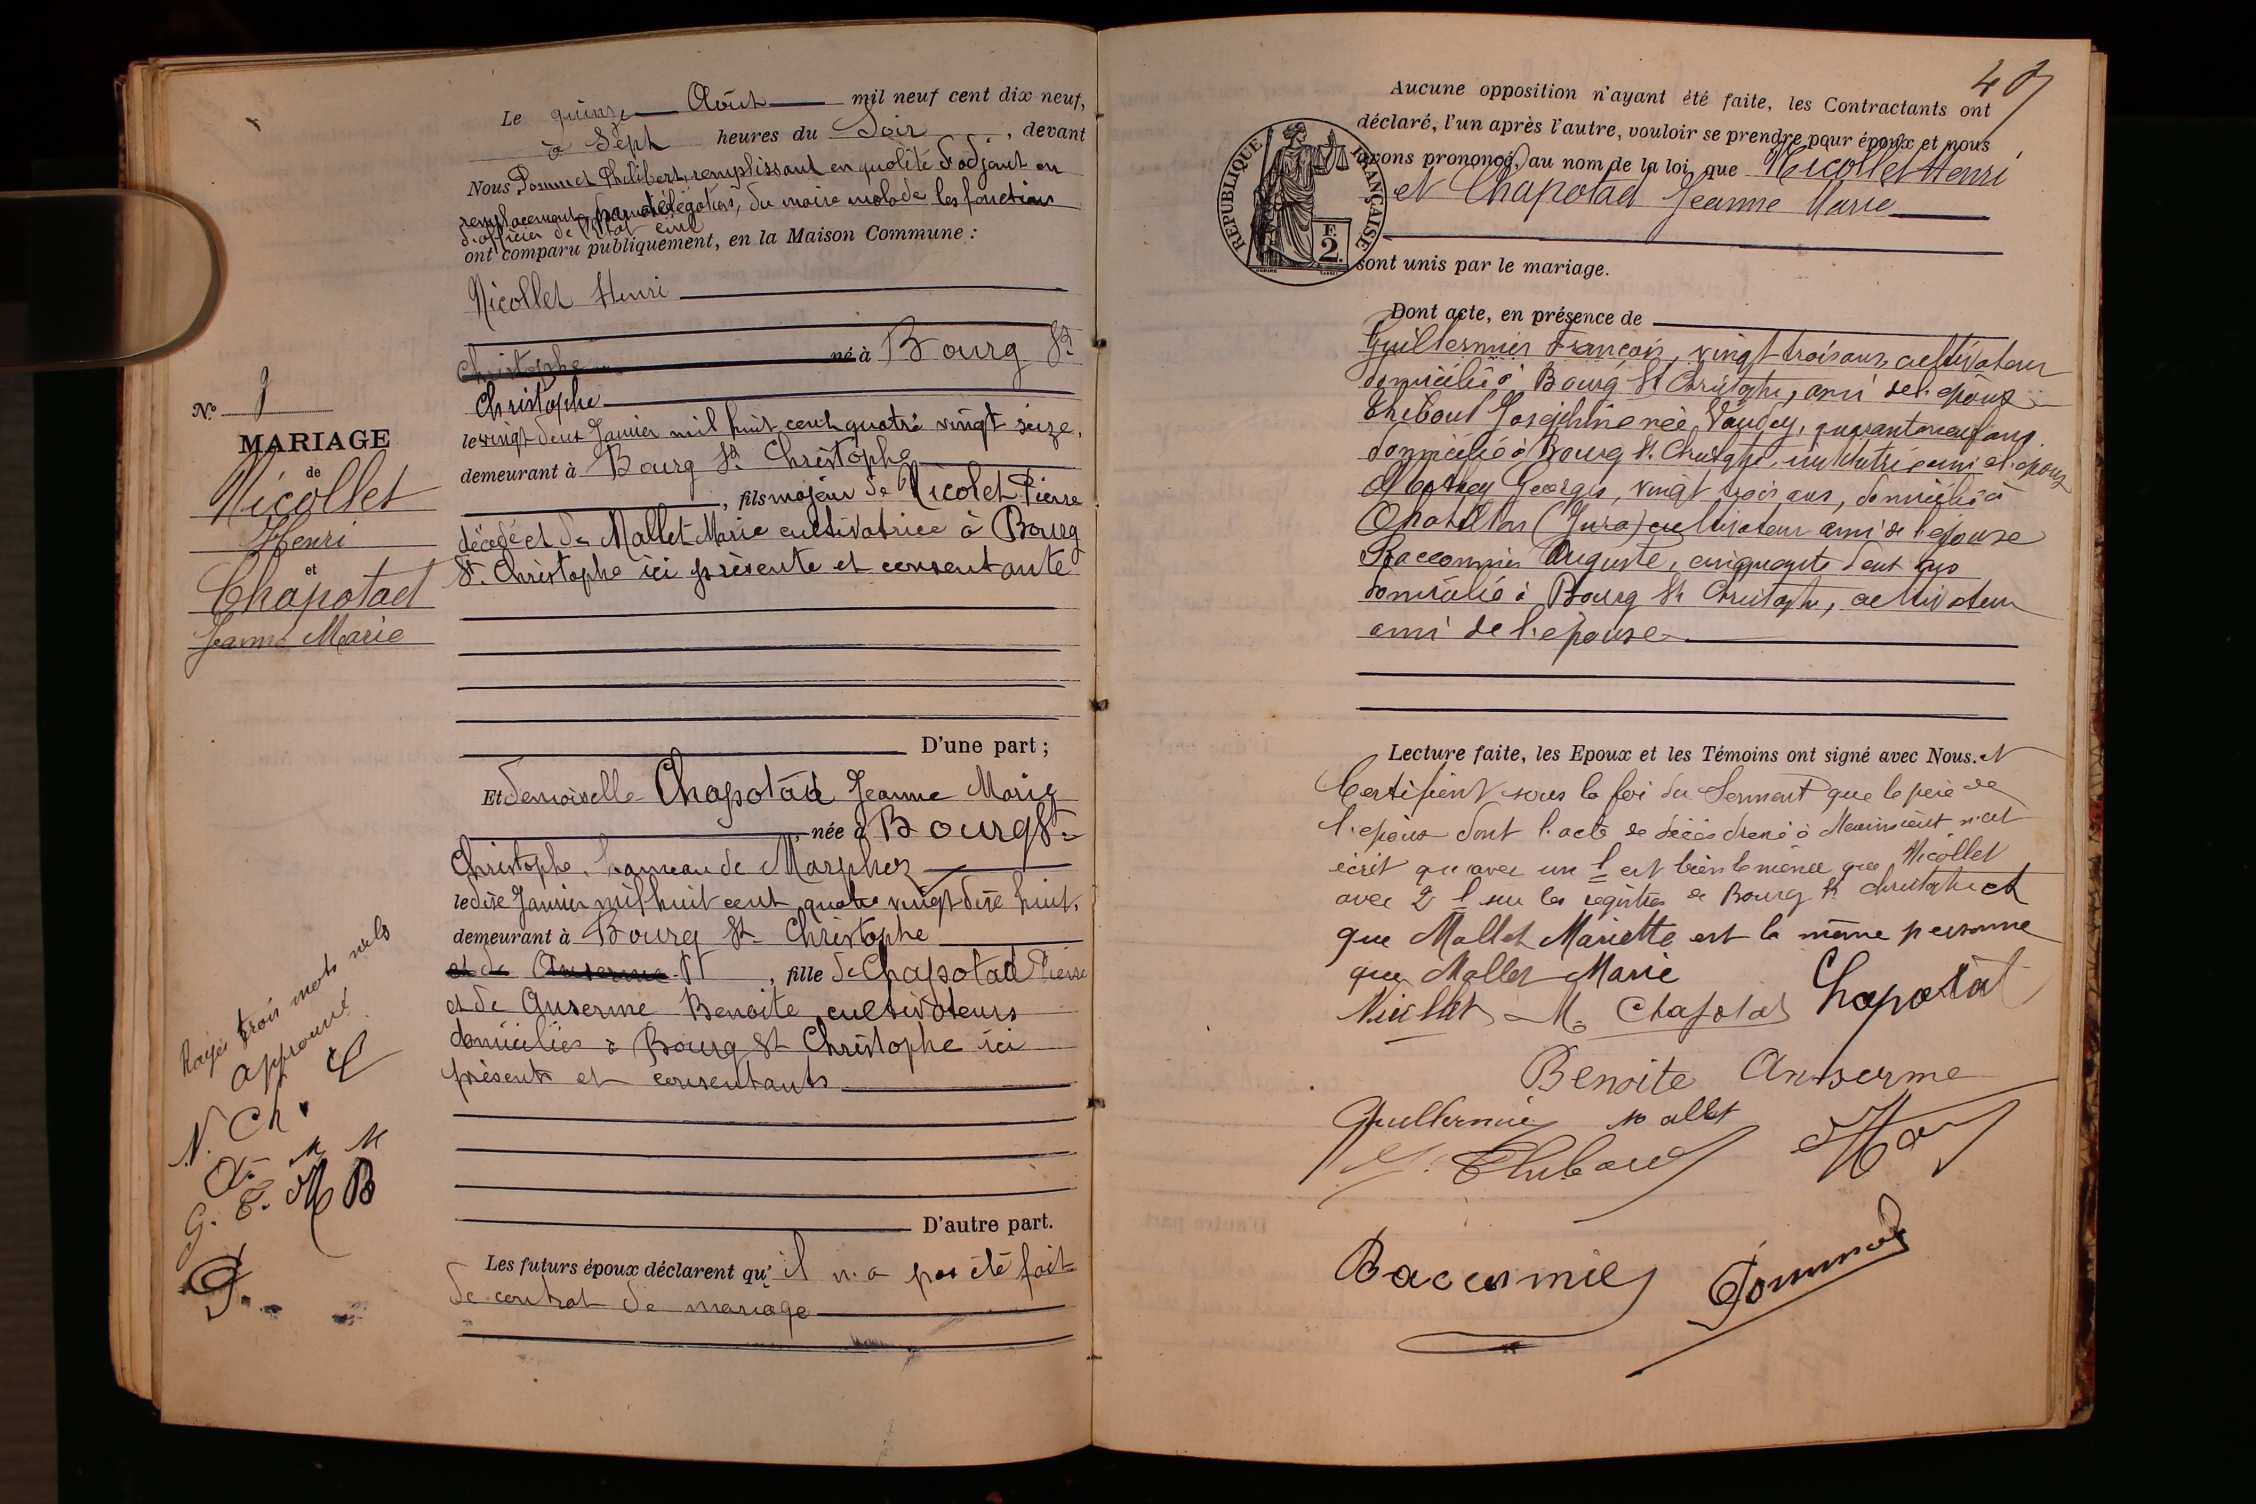 Le quinze Août mil neuf cent dix-neuf,
à Sept heures du Soir, devant
Nous Pommet Philibert, remplissant en qualité d'adjoint en
remplacement, par délégation, du maire malade les fonctions
d'officier de l'état civil
ont comparu publiquement, en la Maison Commune :
Nicollet Henri
Christophe né à Bourg St
Christophe
le vingt deux Janvier mil huit cent quatre vingt seize,
demeurant à Bourg St Christophe
, fils majeur de Nicolet Pierre
décédé et de Mallet Marie cultivatrice à Bourg
St. Christophe ici présente et consentante
D'une part ;
Et demoiselle Chapotad Jeanne Marie
, née à Bourg St
Christophe, hameau de Marphoz
le dixe Janvier mil huit cent quatre vingt dixe huit,
demeurant à Bourg St Christophe
et de Anserme St, fille de Chapotad Pierre
et de Anserme Benoite cultivateurs
domiciliés à Bourg St Christophe ici
présents et consentants
D'autre part.
Les futurs époux déclarent qu'il n'a pas été fait
de contrat de mariage
No 9
MARIAGE
de
Nicollet
Henri
et
Chapotad
Jeanne Marie
Rayés trois mots nuls
approuvé
N. Ch
M M
G. T. M B
P.
49
Aucune opposition n'ayant été faite, les Contractants ont
déclaré, l'un après l'autre, vouloir se prendre pour époux et nous
avons prononcé, au nom de la loi, que Nicollet Henri
et Chapotad Jeanne Marie
RÉPUBLIQUE FRANÇAISE
F.
2.
sont unis par le mariage.
Dont acte, en présence de
Guillermier François, vingt-trois ans, cultivateur
domicilié à Bourg St Christophe, ami de l'époux
Thiboud Joséphine née Vaudey, quarante neuf ans
domiciliée à Bourg St. Christophe, amie de l'époux
Georges, vingt trois ans, domicilié à
Chatillon (Jura) cultivateur ami de l'épouse
Baccconnier Auguste, cinquante deux ans
domicilié à Bourg St Christophe, cultivateur
ami de l'epouse
Lecture faite, les Epoux et les Témoins ont signé avec Nous. et
Certifient sous la foi du Serment que le père de
l'époux dont l'acte de décès dressé à Meximieux n'est
écrit qu'avec un l est bien le même que Nicollet
avec 2 l sur les registres de Bourg St Christophe et
que Mallet Mariette est la même personne
que Mallet Marie
Nicollet M. Chapotad Chapotat
Benoite Anserme
Guillermier Mallet
J. Thiboud
Baconnier Pommet